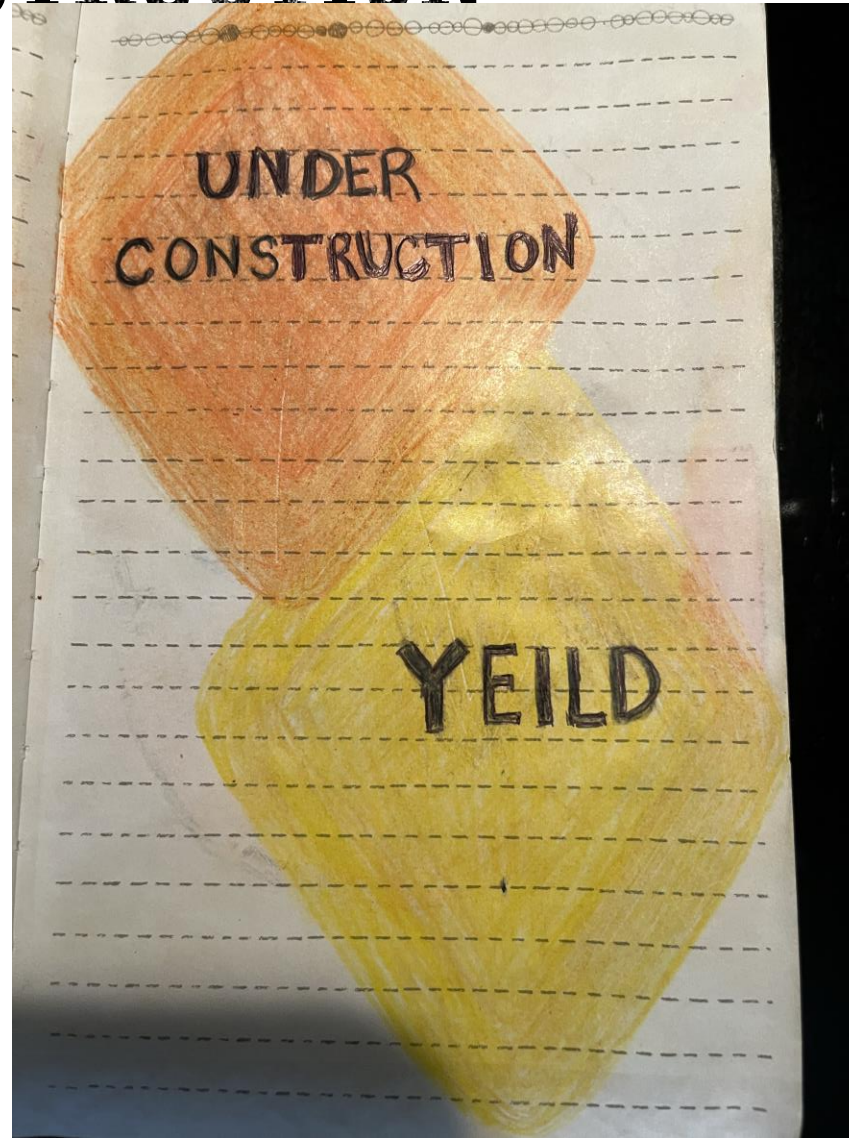 UNDER
CONSTRUCTION
YEILD